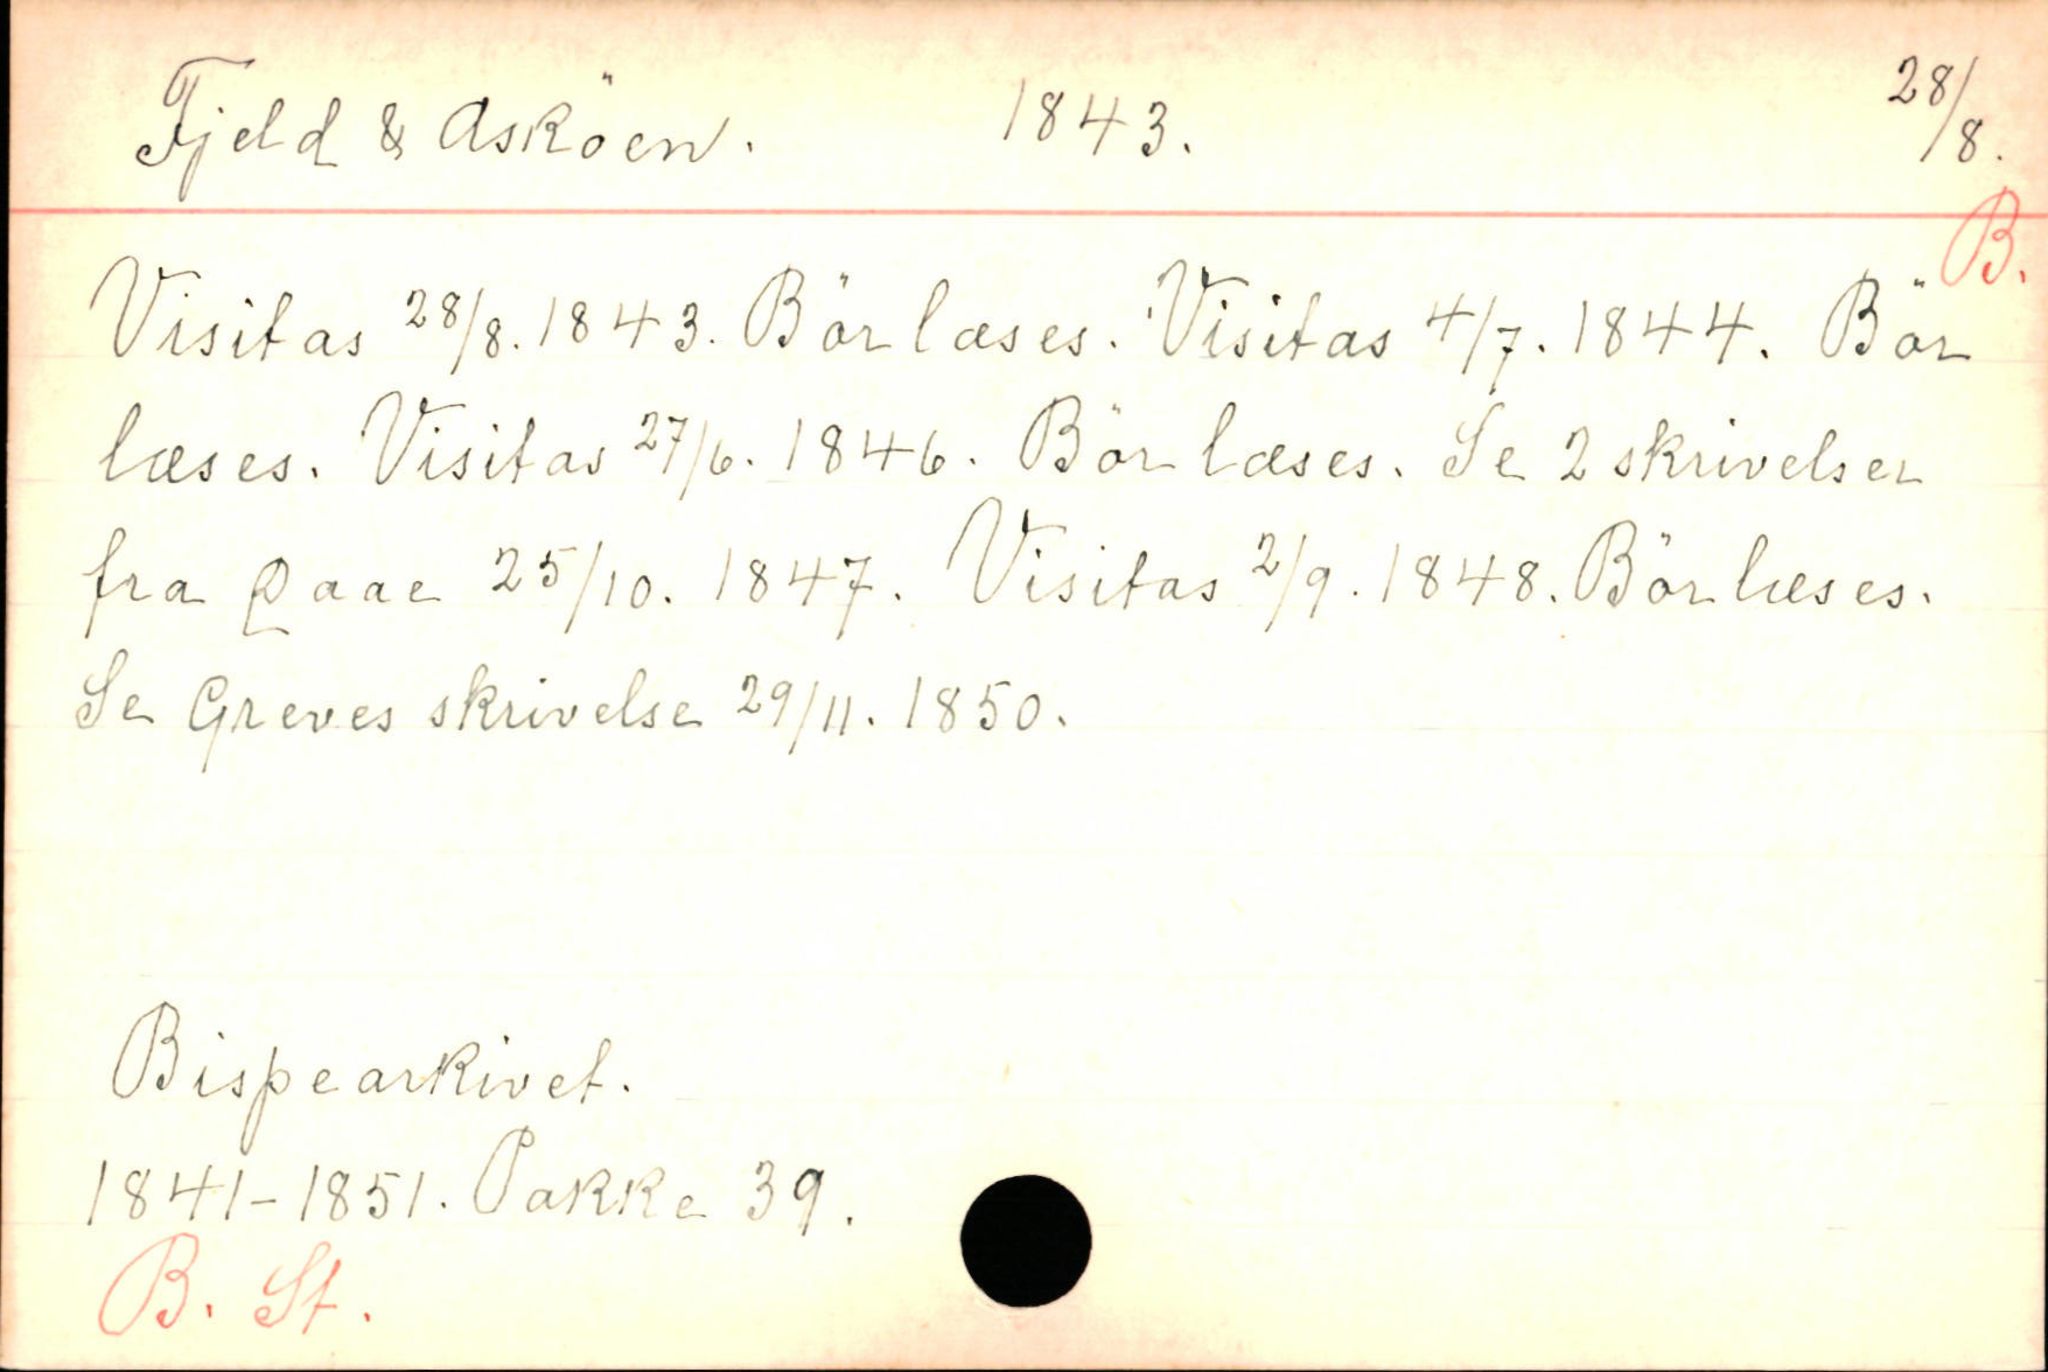 Fjeld & Asköen. 1843. 28/8.
B.
Visitas 28/8. 1843. Bör læses. Visitas 4/7. 1844. Bör
læses. Visitas 27/6. 1846. Bör læses. Se 2 skrivelser
fra Daae 25/10. 1847. Visitas 2/9. 1848. Bör læses.
Se Greves skrivelse 29/11. 1850.
Bispearkivet.
1841-1851. Pakke 39.
B. St.